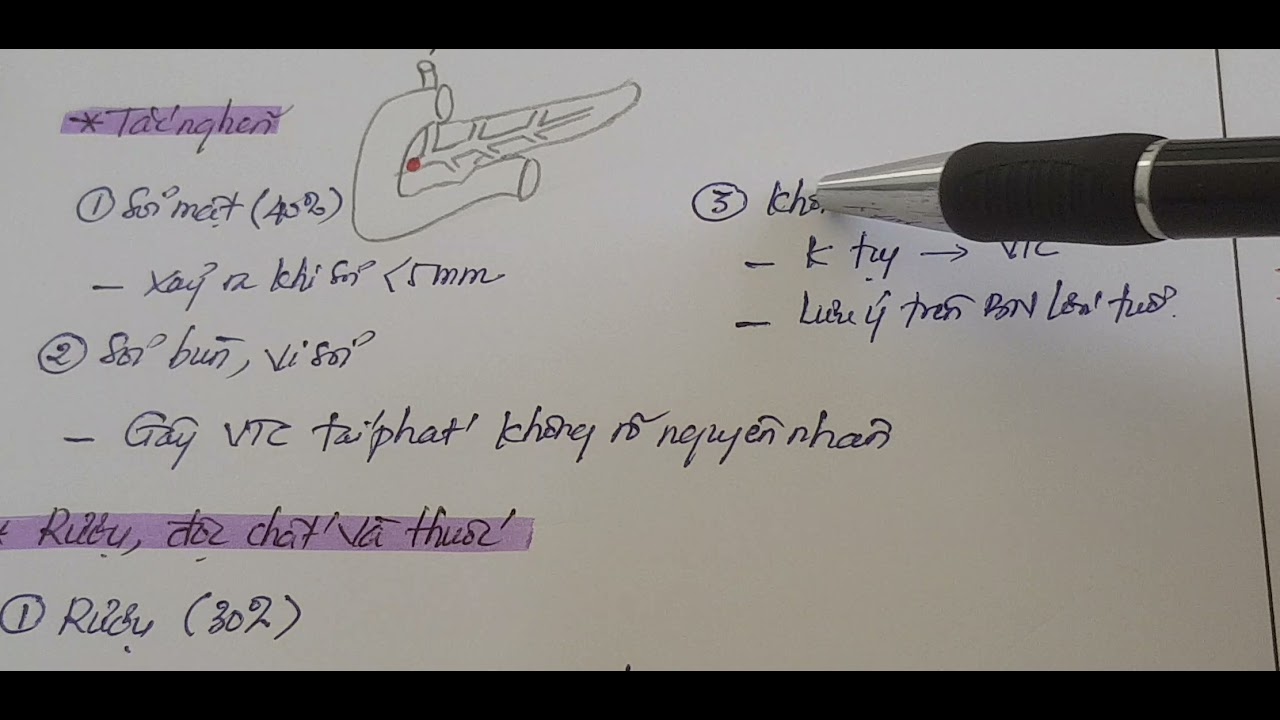 * Tắc nghẽn
① Sỏi mật (40%)
- Xảy ra khi sỏi <5mm
② Sỏi bùn, vi sỏi
- Gây VTC tái phát không rõ nguyên nhân
③
- K tụy → VTC
- Lưu ý trên BN lớn tuổi.
* Rượu, độc chất và thuốc
① Rượu (30%)